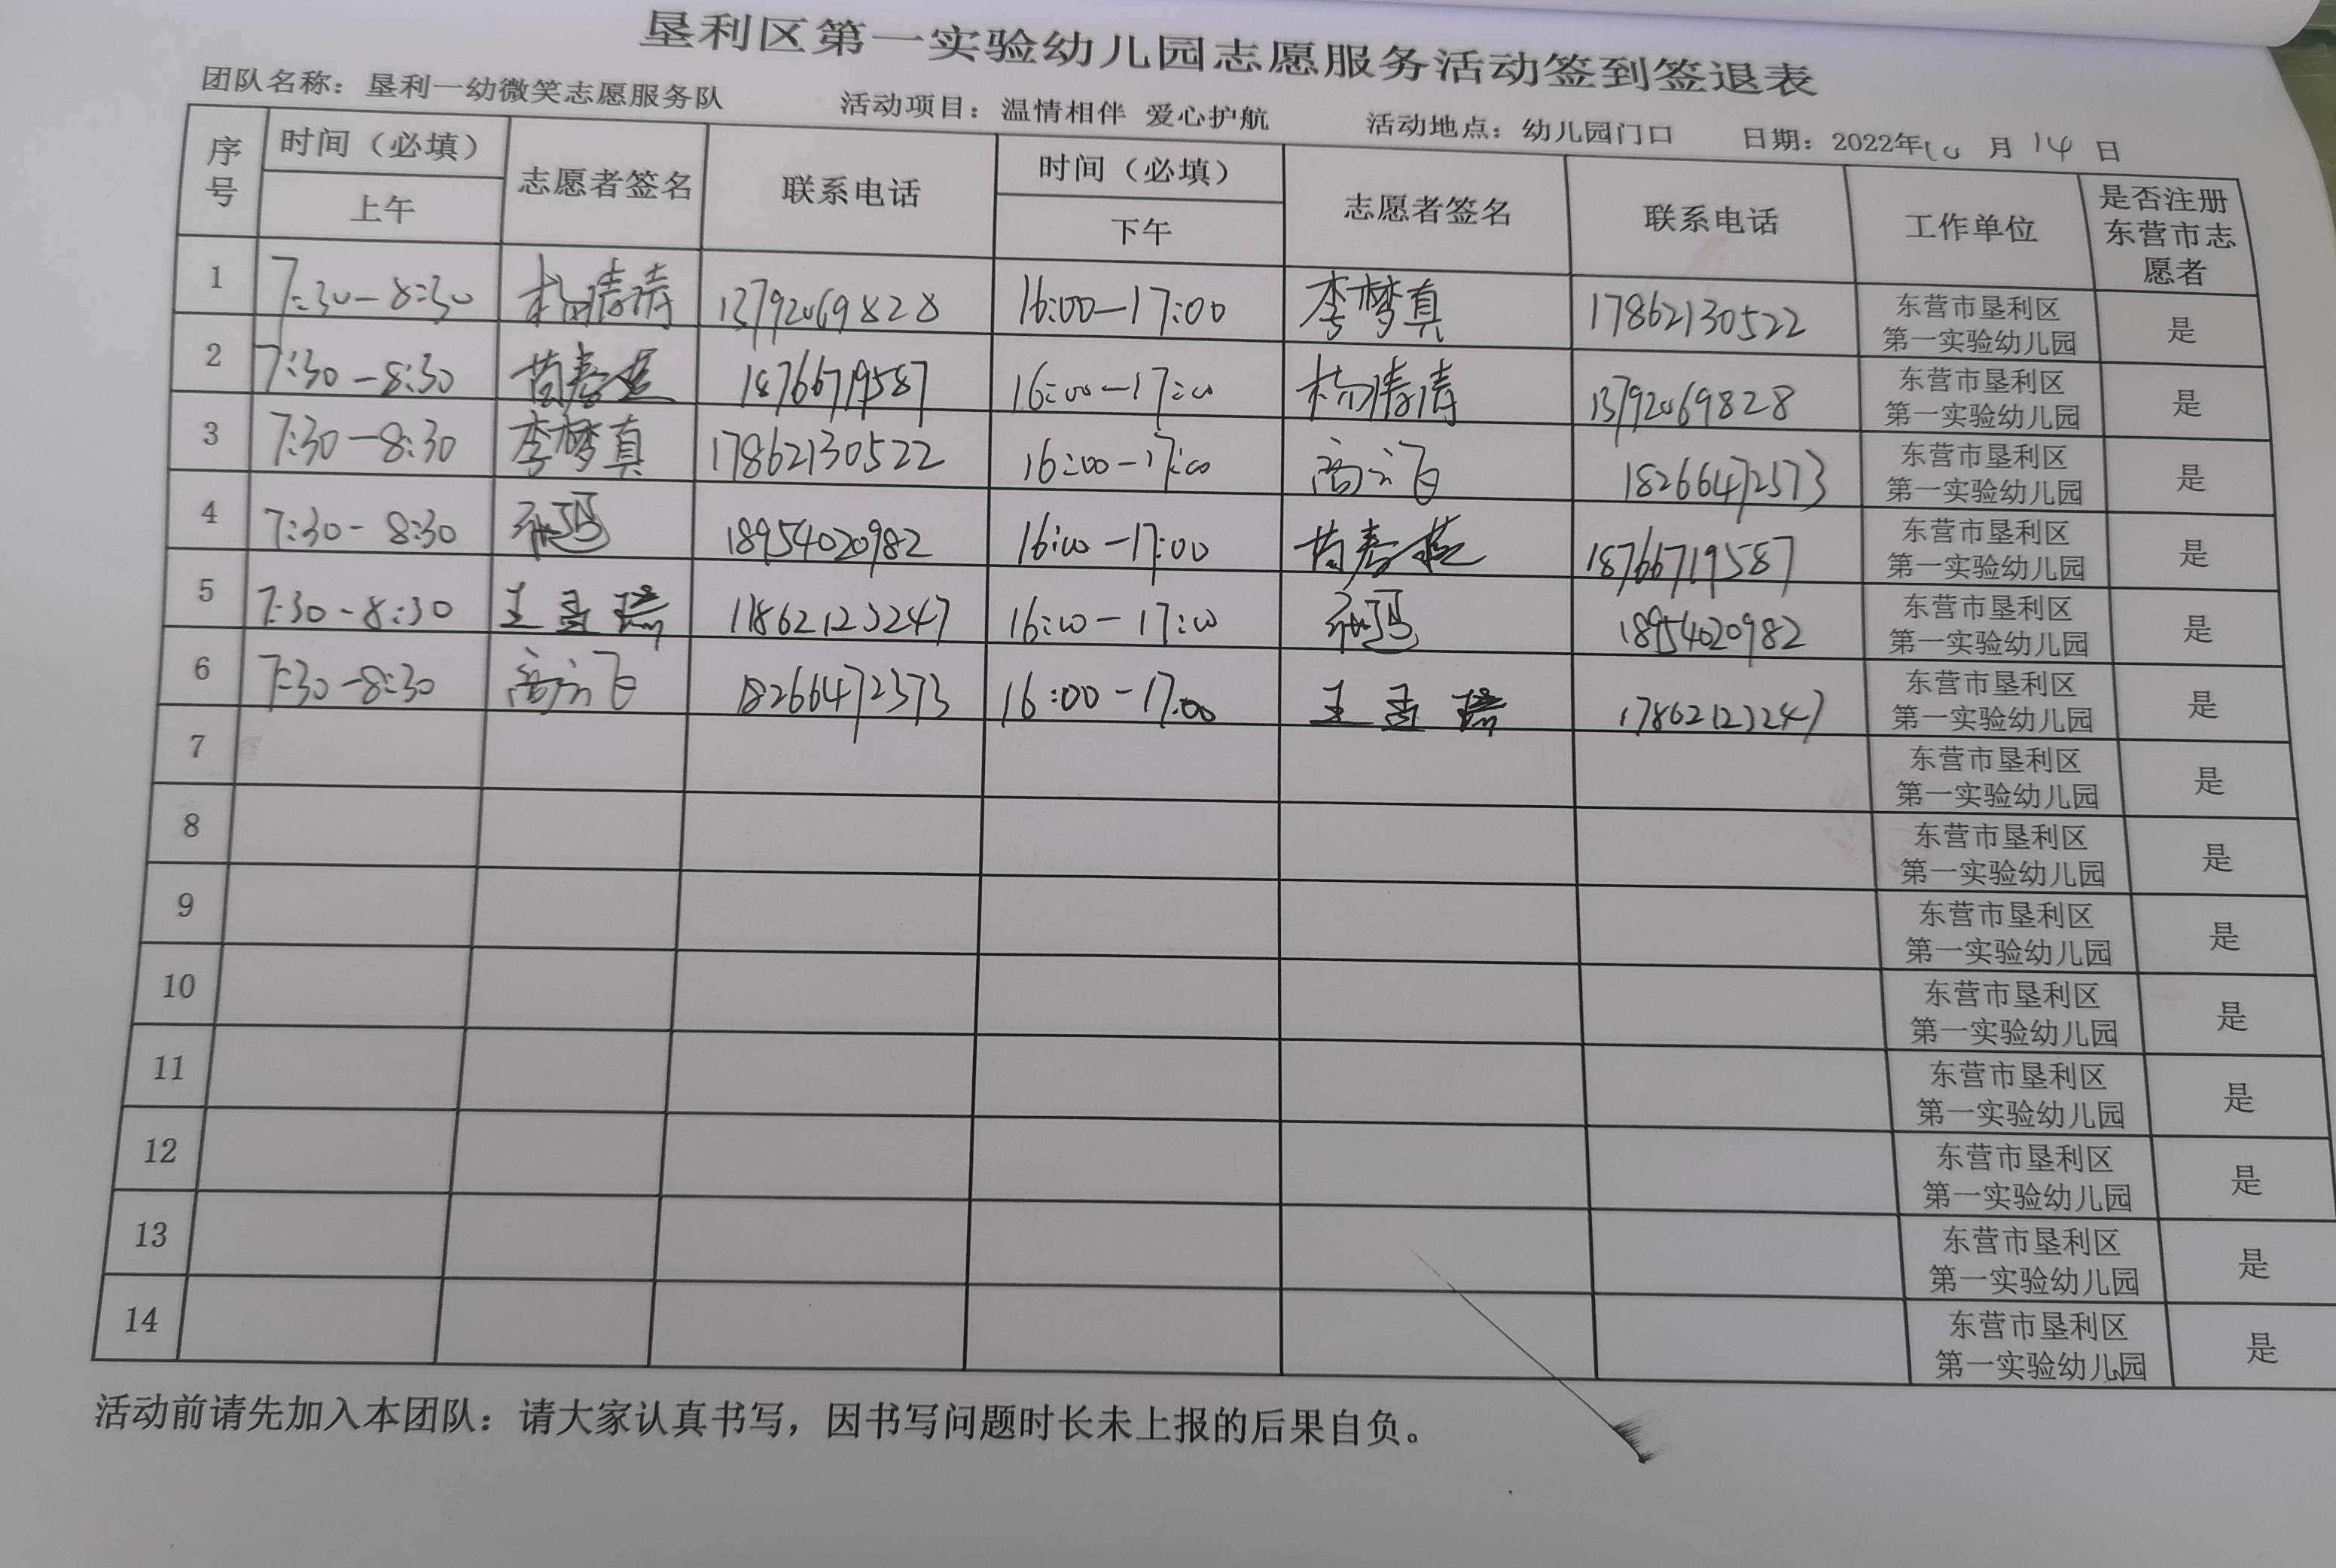 垦利区第一实验幼儿园志愿服务活动签到签退表
团队名称：垦利一幼微笑志愿服务队 活动项目：温情相伴 爱心护航 活动地点：幼儿园门口 日期：2022年10月14日
序号 时间（必填） 上午 志愿者签名 联系电话 时间（必填） 下午 志愿者签名 联系电话 工作单位 是否注册东营市志愿者
1 7:30-8:30 杨涛涛 13792069828 16:00-17:00 李梦真 17862130522 东营市垦利区第一实验幼儿园 是
2 7:30-8:30 18766719587 16:00-17:00 杨涛涛 13792069828 东营市垦利区第一实验幼儿园 是
3 7:30-8:30 李梦真 17862130522 16:00-17:00 18266472573 东营市垦利区第一实验幼儿园 是
4 7:30-8:30 18954020982 16:00-17:00 18766719587 东营市垦利区第一实验幼儿园 是
5 7:30-8:30 王孟瑶 17862123247 16:00-17:00 18954020982 东营市垦利区第一实验幼儿园 是
6 7:30-8:30 18266472573 16:00-17:00 王孟瑶 17862123247 东营市垦利区第一实验幼儿园 是
7 东营市垦利区第一实验幼儿园 是
8 东营市垦利区第一实验幼儿园 是
9 东营市垦利区第一实验幼儿园 是
10 东营市垦利区第一实验幼儿园 是
11 东营市垦利区第一实验幼儿园 是
12 东营市垦利区第一实验幼儿园 是
13 东营市垦利区第一实验幼儿园 是
14 东营市垦利区第一实验幼儿园 是
活动前请先加入本团队：请大家认真书写，因书写问题时长未上报的后果自负。